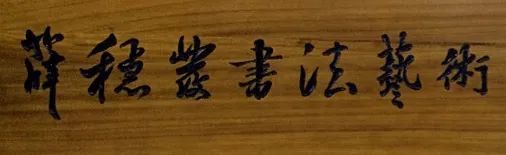 薛稳叢書法藝術